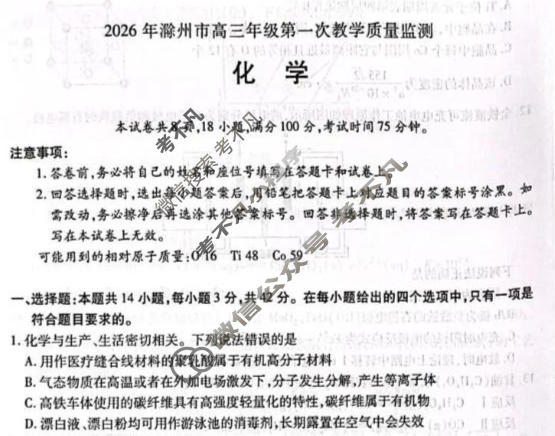 2026 年滁州市高三年级第一次教学质量监测
化 学
本试卷共8页,18 小题,满分 100 分,考试时间 75 分钟。
注意事项:
1. 答卷前,务必将自己的姓名和座位号填写在答题卡和试卷上。
2. 回答选择题时,选出每小题答案后,用铅笔把答题卡上对应题目的答案标号涂黑。如
需改动,务必擦净后再选涂其他答案标号。回答非选择题时,将答案写在答题卡上。
写在本试卷上无效。
可能用到的相对原子质量:O 16 Ti 48 Co 59
一、选择题:本题共 14 小题,每小题 3 分,共 42 分。在每小题给出的四个选项中,只有一项是
符合题目要求的。
1. 化学与生产、生活密切相关。下列说法错误的是
A. 用作医疗缝合线材料的聚乳酸属于有机高分子材料
B. 气态物质在高温或者在外加电场激发下,分子发生分解,产生等离子体
C. 高铁车体使用的碳纤维具有高强度轻量化的特性,碳纤维属于有机物
D. 漂白液、漂白粉均可用作游泳池的消毒剂,长期露置在空气中会失效